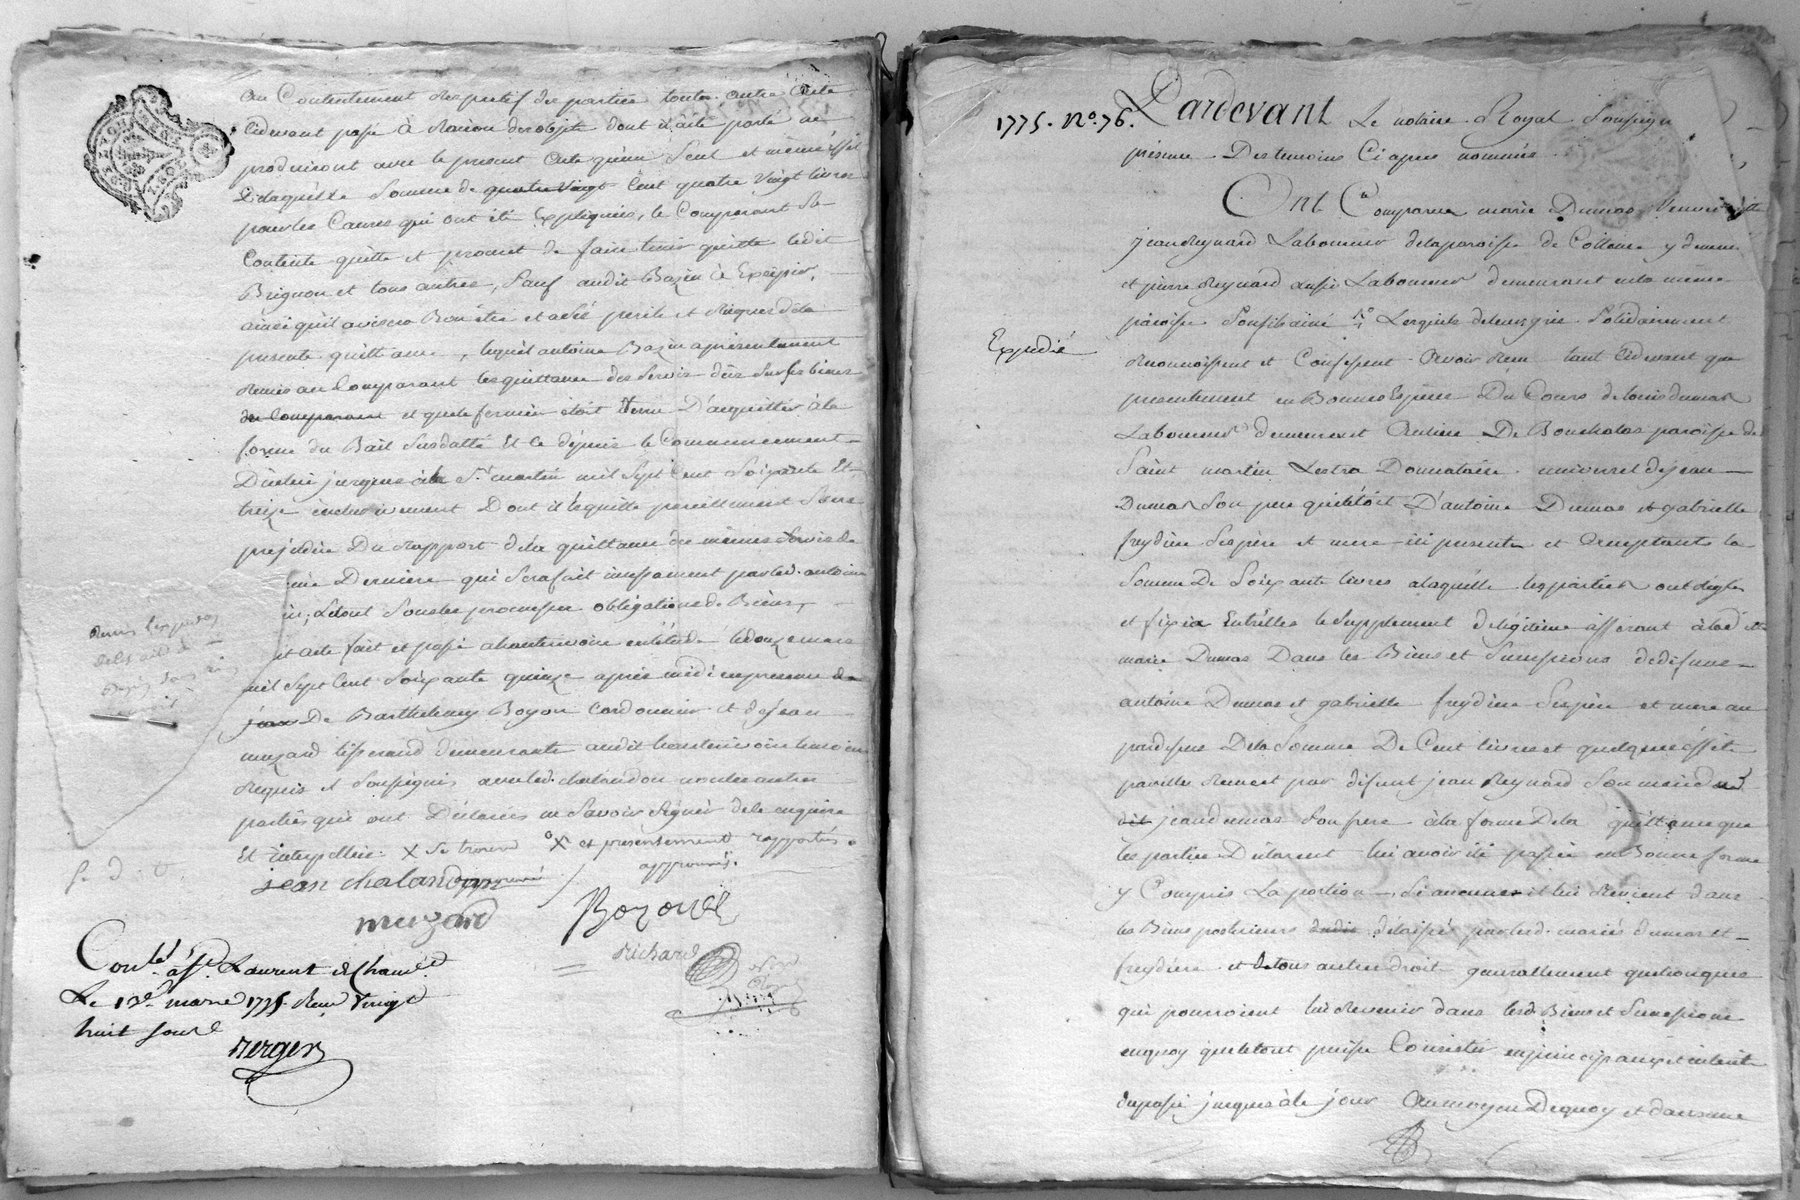 au Contentement respectif des parties toutes autre acte
cidevant passé à Raison des objets dont il a été parlé ne
produiront avec le present acte qu'un seul et même effet
De laquelle somme de quatre vingt cent quatre vingt livres
pour les Causes qui ont été Expliquées, le Comparant se
Contente quitte et promet de faire tenir quitte ledit
Brignon et tous autres, sauf audit Bazin à Exciper,
ainsi qu'il avisera Bon être et a ses perils et Risques de la
presente quittance, lequel antoine Bazin a presentement
Remis au Comparant les quittances des servis dus sur ses biens
du Comparant et que le fermier étoit Tenu D'acquitter à la
forme du Bail susdatté Et ce depuis le Commencement
D'icelui jusques à la St martin mil sept Cent soixante Et
treize inclusivement Dont il le quitte pareillement sans
préjudice Du Rapport de la quittance des mêmes servis de
Derniere qui sera fait incessament par led. antoine
obligations de Biens,
et acte fait et passé le douze mars
mil sept Cent soixante quinze après midi en presence de
jean De Barthelemy Boyou Cordonnier et de jean
muzard tisserand demeurants audit témoins
Requis et soussignés avec led. chalandon non les autres
parties qui ont Déclarés ne savoir signer de ce enquise
Et interpellée. X se trouve X et presentement rapportés.
approuvés.
jean chalandon
muzard
Richard
Conlé à St. Laurent de Cham.t
Le 13e mars 1775. Reçu vingt
huit sous
Berger
1775. No. 76.
Pardevant Le notaire Royal soussigné
présence Des temoins Ci apres nommés
Ont Comparu marie Dumas Veuve
jean Reynard Laboureur de la paroisse de Cottance y demeurant
et pierre Reynard aussi Laboureur demeurant en la même
paroisse Lesquels de leurs gré solidairement
Expedié
Reconnoissent et Confessent avoir Reçu tant Cidevant que
presentement en Bonnes espèces Du Cours de louis dumas
Laboureur demeurant au lieu De Boucholas paroisse de
saint martin Lestra Donnataire universel de jean
Dumas son pere qui l'étoit D'antoine Dumas et gabrielle
freydiere ses père et mere ici present et acceptant la
somme De soixante livres a laquelle les parties ont réglés
et fixée Entr'elles le supplement de légitime afferant à lad.te
marie Dumas Dans les Biens et successions de défunts
antoine Dumas et gabrielle freydiere ses père et mere au
pardessus De la somme De Cent livres et quelques effets
par elle Reçus et par défunt jean Reynard son mari dud.
dit jean dumas son pere à la forme De la quittance que
les parties Déclarent lui avoir été passée en Bonne forme
y Compris La portion si aucune il lui Revient dans
les Biens posterieurs dudit délaissés par lesd. mariés dumas et
freydiere et de tous autres droits generallement quelconques
qui pourroient lui Revenir dans lesd. Biens et successions
en quoy que le tout puisse Consister en principaux et intérêts
du passé jusques à ce jour Au moyen De quoy et dans une